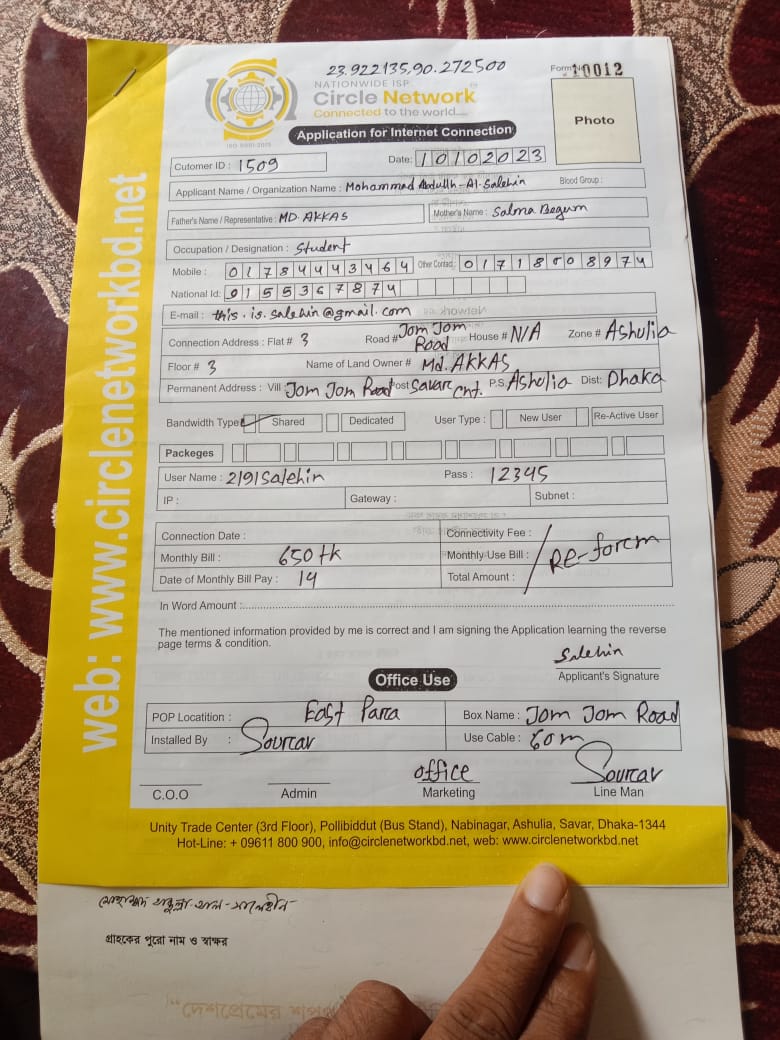 23.922135,90.272500
Form 10012
NATIONWIDE ISP
Circle Network
Connected to the world....
ISO 9001:2015
Photo
Application for Internet Connection
Cutomer ID : 1509
Date: 10102023
Applicant Name / Organization Name : Mohammad Abdullh-Al-Salehin Blood Group :
Father's Name / Representative : MD. AKKAS Mother's Name : Salma Begum
Occupation / Designation : Student
Mobile : 01784443464 Other Contact : 01718008974
National Id: 0155367874
E-mail : this.is.salehin@gmail.com
Connection Address : Flat # 3 Road # Jom Jom Road House # N/A Zone # Ashulia
Floor # 3 Name of Land Owner # Md. AKKAS
Permanent Address : Vill Jom Jom Road Post Savar Cnt. P.S Ashulia Dist: Dhaka
Bandwidth Type Shared Dedicated User Type : New User Re-Active User
Packeges
User Name : 2191Salehin Pass : 12345
IP : Gateway : Subnet :
Connection Date : Connectivity Fee :
Monthly Bill : 650 tk Monthly Use Bill : Re-form
Date of Monthly Bill Pay : 14 Total Amount :
In Word Amount :
The mentioned information provided by me is correct and I am signing the Application learning the reverse
page terms & condition.
Salehin
Applicant's Signature
Office Use
POP Locatition : East Para Box Name : Jom Jom Road
Installed By : Sourav Use Cable : 60m
office Sourav
C.O.O Admin Marketing Line Man
Unity Trade Center (3rd Floor), Pollibiddut (Bus Stand), Nabinagar, Ashulia, Savar, Dhaka-1344
Hot-Line: + 09611 800 900, info@circlenetworkbd.net, web: www.circlenetworkbd.net
web: www.circlenetworkbd.net
মোহাম্মদ আব্দুল্লা-আল-সালেহীন
গ্রাহকের পুরো নাম ও স্বাক্ষর